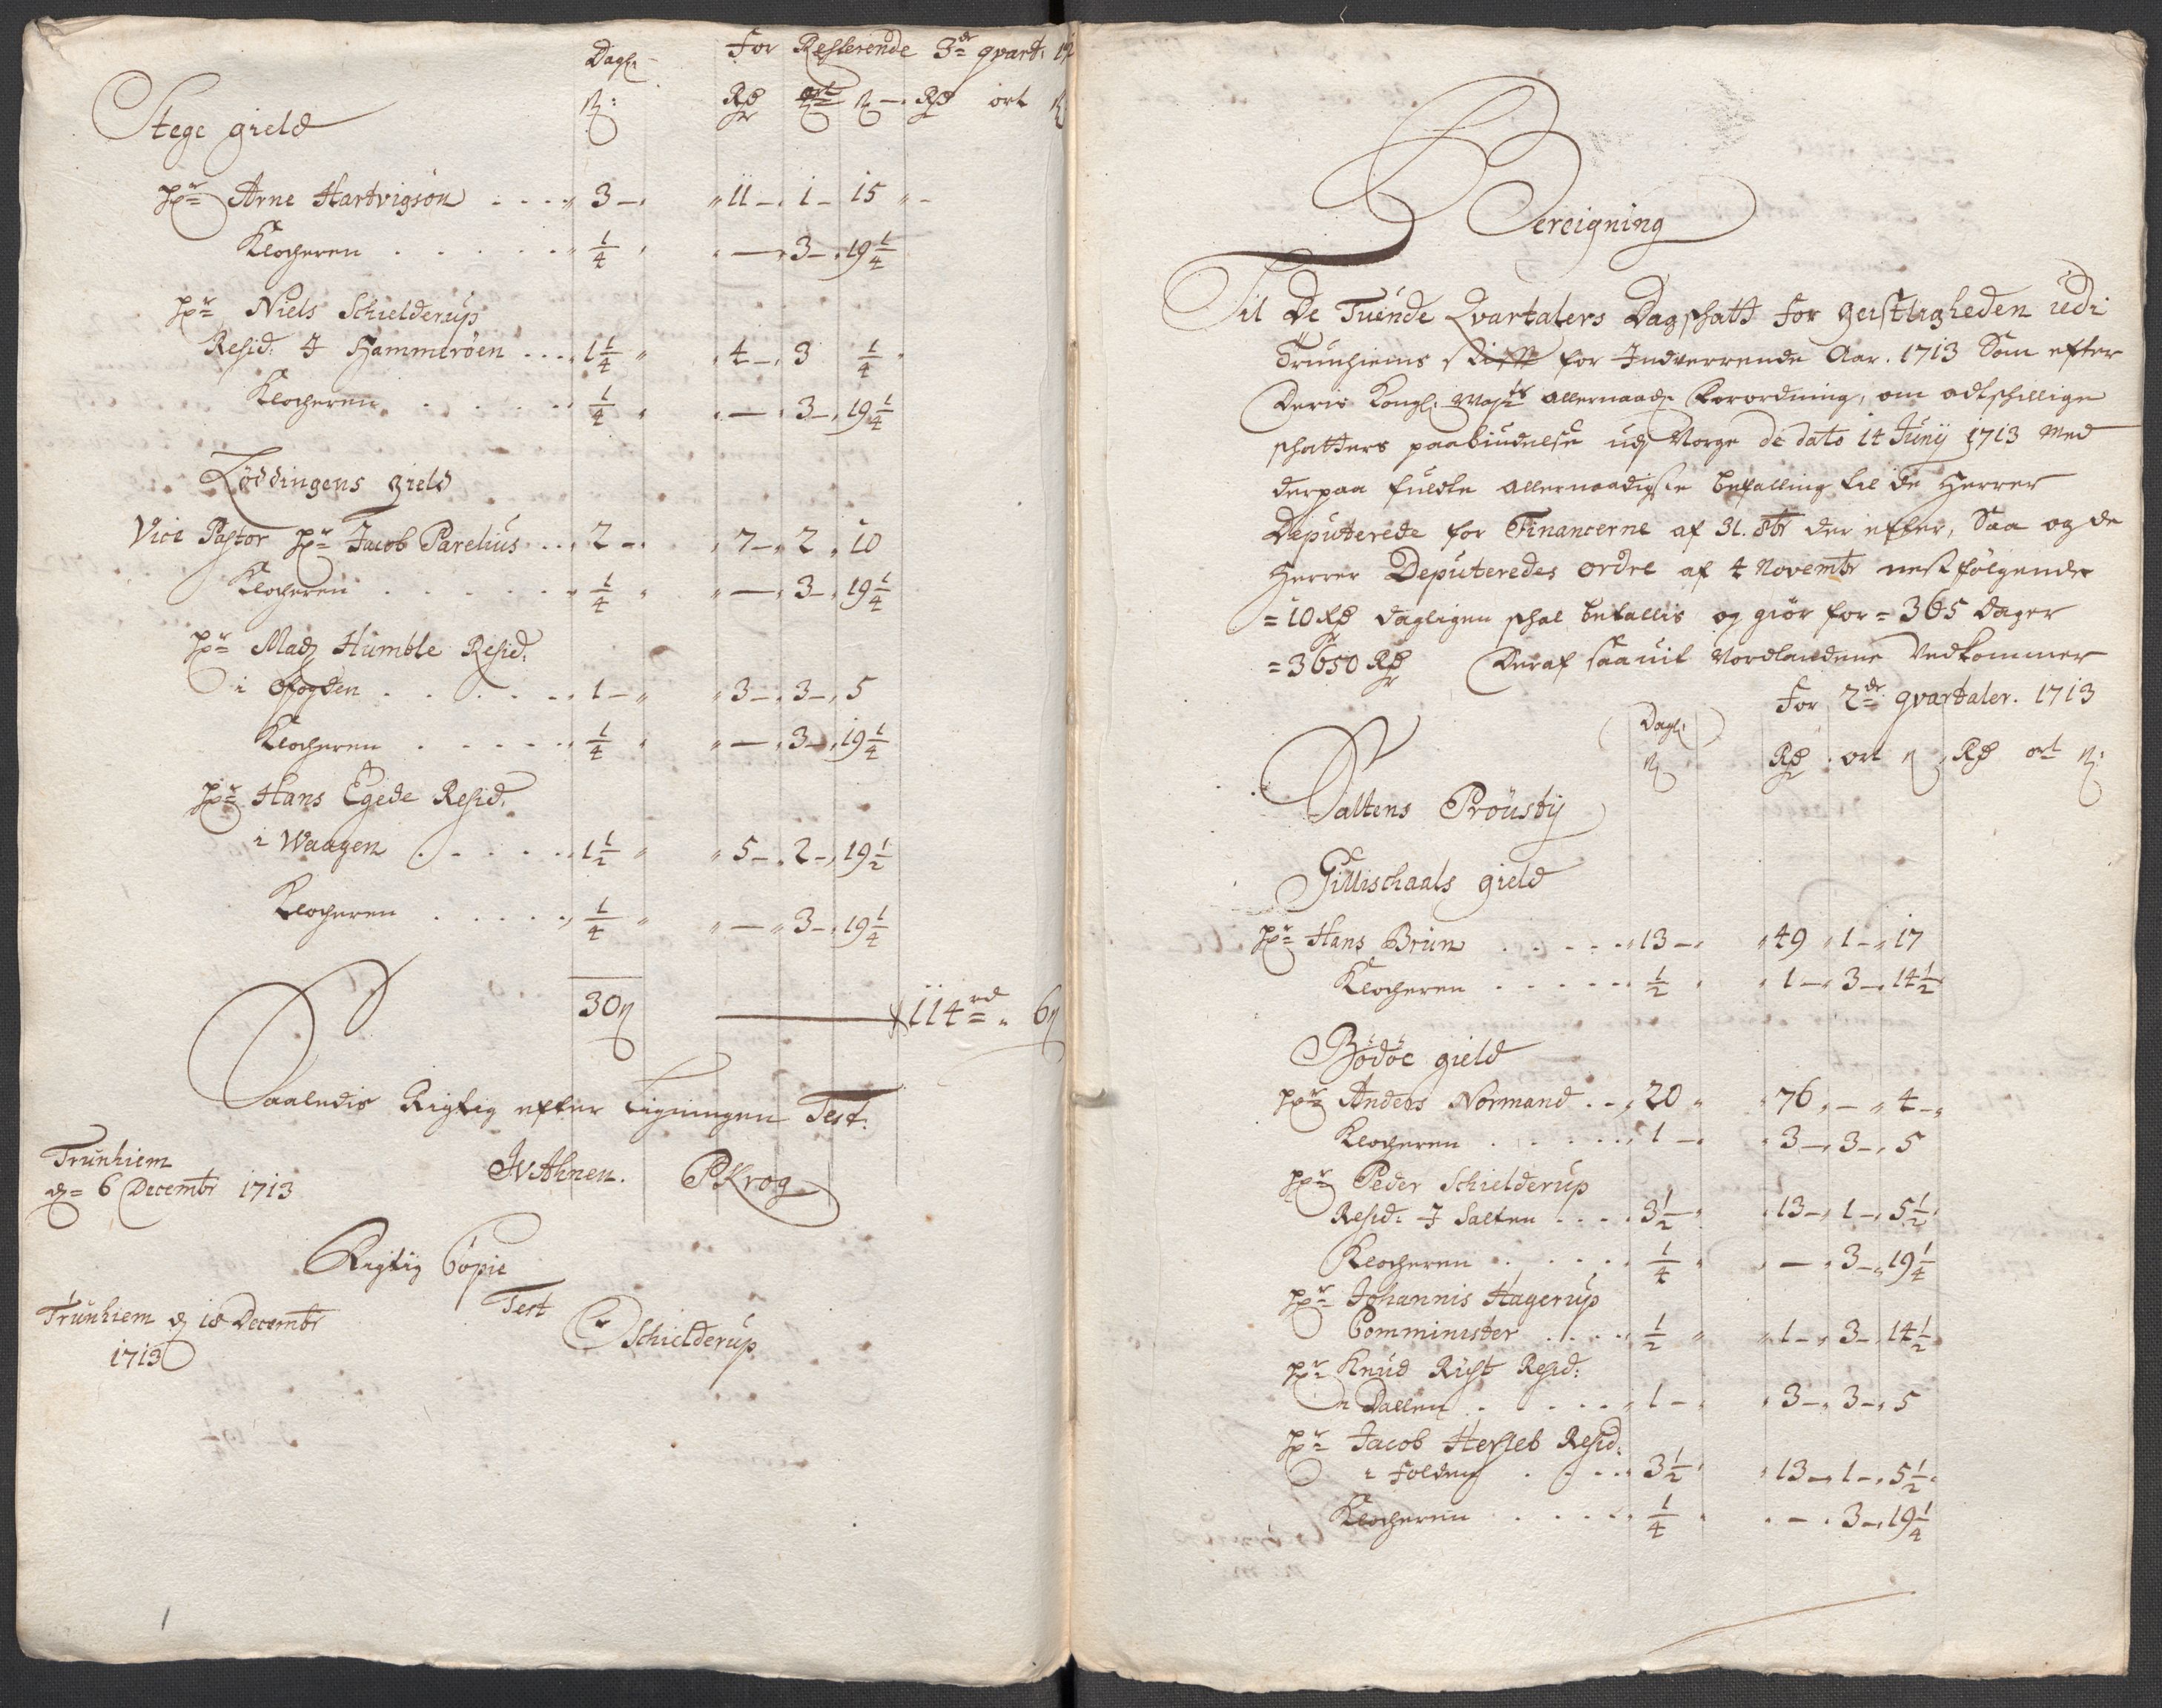 Dagl. For Resterende 3de qvart. 17
ß: Rd ort ß Rd ort ß
Stege gield
Hr Arne Hartvigsön . . . 3 — 11 — 1 — 15
Klocheren . . . . . 1/4 — 3 — 19 1/4
Hr Niels Schielderup
Resid: I Hammeröen . . . 1 1/4 4 — 3 1/4
Klocheren . . . . . 1/4 — 3 — 19 1/4
Löddingens gield
Vice Pastor Hr Jacob Parelius . . . 2 — 7 — 2 10
Klocheren . . . . . 1/4 — 3 — 19 1/4
Hr Mads Humble Resid.
i Ofogden . . . . . 1 — 3 — 3 — 5
Klocheren . . . . . 1/4 — 3 — 19 1/4
Hr Hans Egede Resid.
i Waagen . . . . . 1 1/2 5 — 2 — 19 1/2
Klocheren . . . . . 1/4 — 3 — 19 1/4
30ß — 114 rd „ 6ß
Saaledis Rigtig efter Ligningen Test.
Trunhiem
d= 6 Decembr 1713 JvAhnen. PKrog
Rigtig Copie
Trunhiem d 18 Decembr Test
1713 Schielderup
Bereigning
Til De Tuende Qvartalers Dagskatt for geistligheden udi
Trunhiems Stift for Indverrende Aar. 1713 Som efter
Deris Kongl: Mayts allernaadg. Forordning, om adtschillige
schatters paabiudelse udj Norge de dato 14 Junij 1713 Med
derpaa fuldte allernaadigste befalling til de Herrer
Deputerede for Financerne af 31. 8br der efter, Saa og de
Herrer Deputeredes ordre af 4 Novembr nest følgende
= 10 Rd dagligen schal betallis og giör for = 365 Dager
= 3650 Rd Deraf saauit Nordlandene Vedkommer
For 2de qvartaler. 1713
Dagl:
ß Rd ort ß Rd ort ß:
Saltens Proustij
Gillischaals gield
Hr Hans Brun . . . . . 13 — 49 1 — 17
Klocheren . . . . . 1/2 1 — 3 — 14 1/2
Bödöe gield
Hr Anders Normand . . 20 76 — 4 —
Klocheren . . . . . 1 — 3 — 3 — 5
Hr Peder Schielderup
Resid: I Salten . . . . 3 1/2 13 — 1 — 5 1/2
Klocheren . . . . . 1/4 — 3 — 19 1/4
Hr Johannis Hagerup
Comminister . . . . 1/2 1 — 3 — 14 1/2
Hr Knud Rist Resid:
i Dallen . . . . . 1 — 3 — 3 — 5
Hr Jacob Hersleb Resid.
i Folden . . . . 3 1/2 13 — 1 — 5 1/2
Klocheren . . . . . 1/4 — 3 — 19 1/4